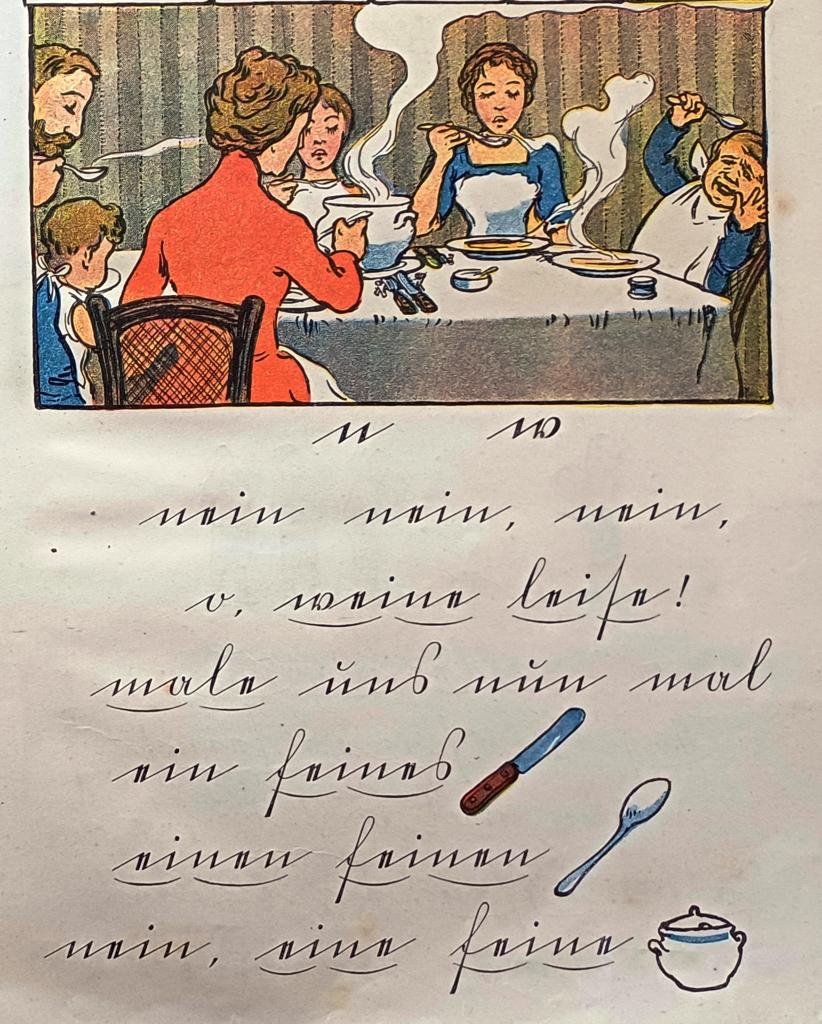 n w
nein nein, nein,
o, weine leise!
male uns nun mal
ein feines
einen feinen
nein, eine feine